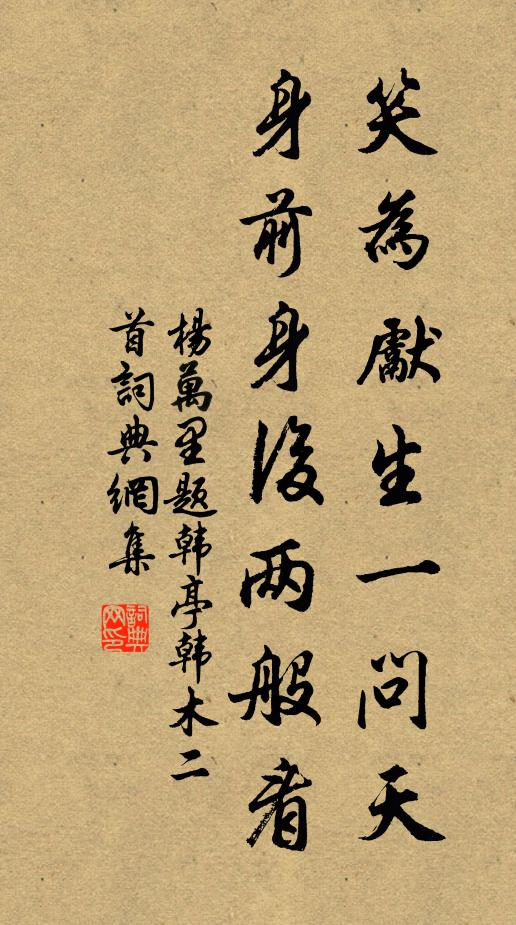 笑為獻生一問天
身前身後两般看
楊萬里题韩亭韩木二
首詞典網集
詞典网印